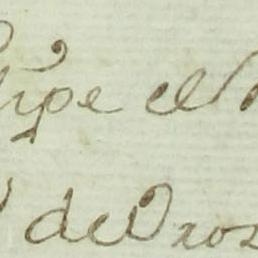 lipe el
de Dios